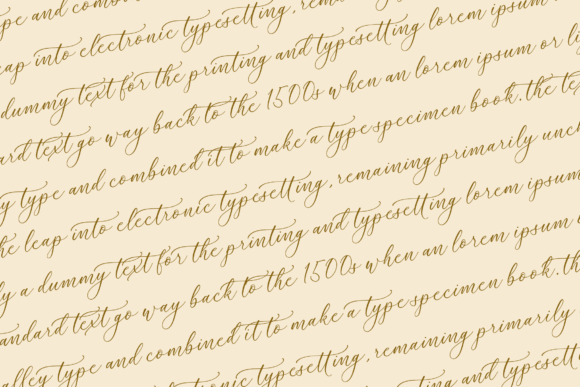 ype and comb
eap into electronic typesetting, remai
dummy text for the printing and typesetting lorem ipsum
ard text go way back to the 1500s when an lorem ipsum or li
y type and combined it to make a type specimen book. the te
he leap into electronic typesetting, remaining primarily unch
ly a dummy text for the printing and typesetting lorem ipsum
andard text go way back to the 1500s when an lorem ipsum
alley type and combined it to make a type specimen book. th
electronic typesetting, remaining primarily
and typesett